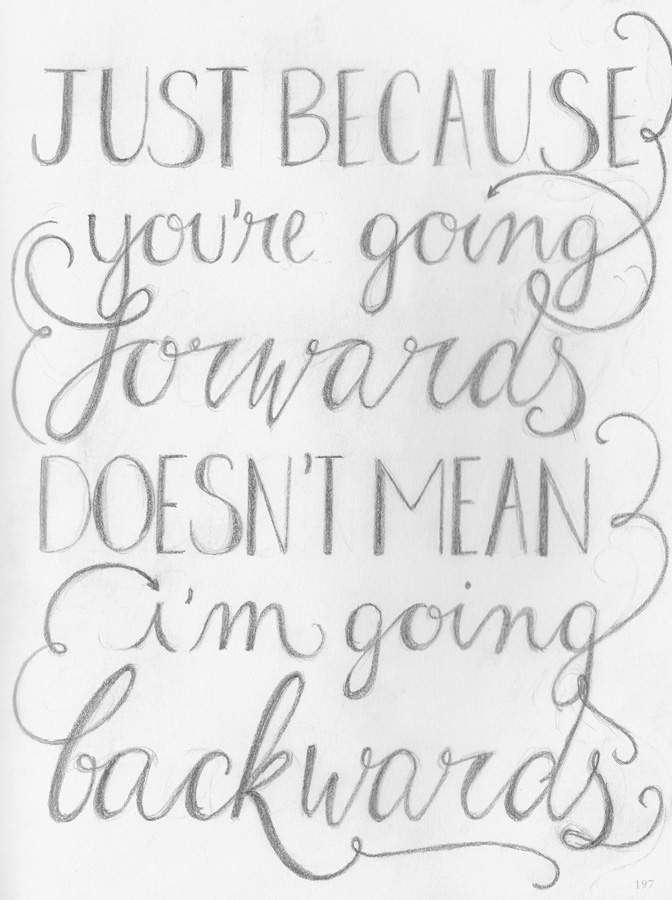 JUST BECAUSE
you're going
forwards
DOESN'T MEAN
i'm going
backwards
197